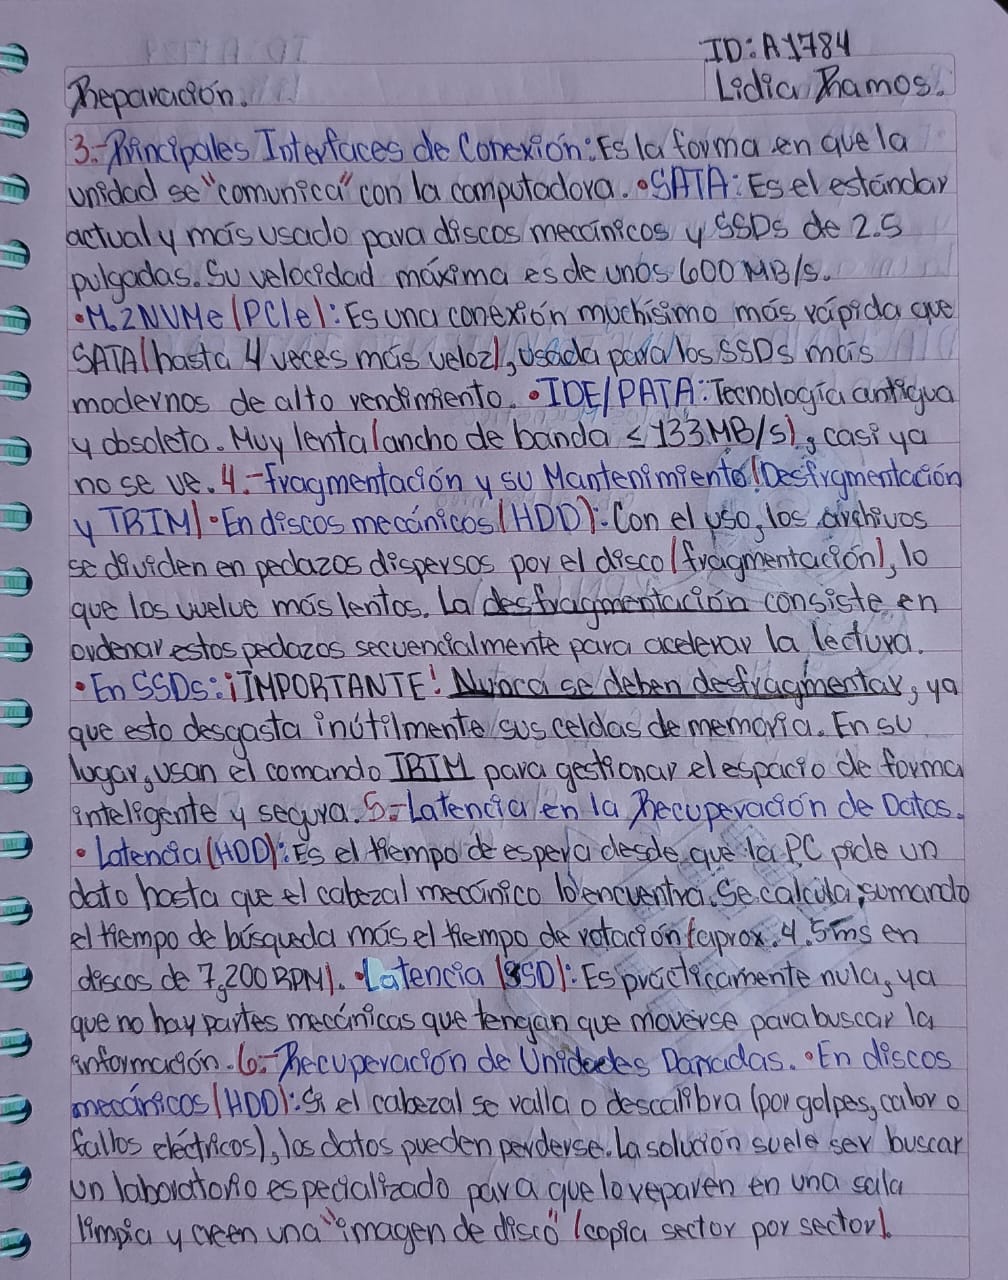 ID: A1784
Reparación.
Lidia Ramos.
3.- Principales Interfaces de Conexión: Es la forma en que la
unidad se "comunica" con la computadora. •SATA: Es el estándar
actual y más usado para discos mecánicos y SSDs de 2.5
pulgadas. Su velocidad máxima es de unos 600 MB/s.
•M.2 NVMe (PCIe): Es una conexión muchísimo más rápida que
SATA (hasta 4 veces más veloz), usada para los SSDs más
modernos de alto rendimiento. •IDE/PATA: Tecnología antigua
y obsoleta. Muy lenta (ancho de banda ≤ 133 MB/s), casi ya
no se ve. 4.- fragmentación y su Mantenimiento (Desfrgmentación
y TRIM) •En discos mecánicos (HDD): Con el uso, los archivos
se dividen en pedazos dispersos por el disco (fragmentación), lo
que los vuelve más lentos. La desfragmentación consiste en
ordenar estos pedazos secuencialmente para acelerar la lectura.
•En SSDs: ¡IMPORTANTE! Nunca se deben desfragmentar, ya
que esto desgasta inútilmente sus celdas de memoria. En su
lugar, usan el comando TRIM para gestionar el espacio de forma
inteligente y segura. 5.- Latencia en la Recuperación de Datos.
• Latencia (HDD): Es el tiempo de espera desde que la PC pide un
dato hasta que el cabezal mecánico lo encuentra. Se calcula sumando
el tiempo de búsqueda más el tiempo de rotación (aprox. 4.5ms en
discos de 7,200 RPM). •Latencia (SSD): Es prácticamente nula, ya
que no hay partes mecánicas que tengan que moverse para buscar la
información. 6.- Recuperación de Unidades Dañadas. •En discos
mecánicos (HDD): Si el cabezal se valla o descalibra (por golpes, calor o
fallos eléctricos), los datos pueden perderse. La solución suele ser buscar
un laboratorio especializado para que lo reparen en una sala
limpia y creen una "imagen de disco" (copia sector por sector).